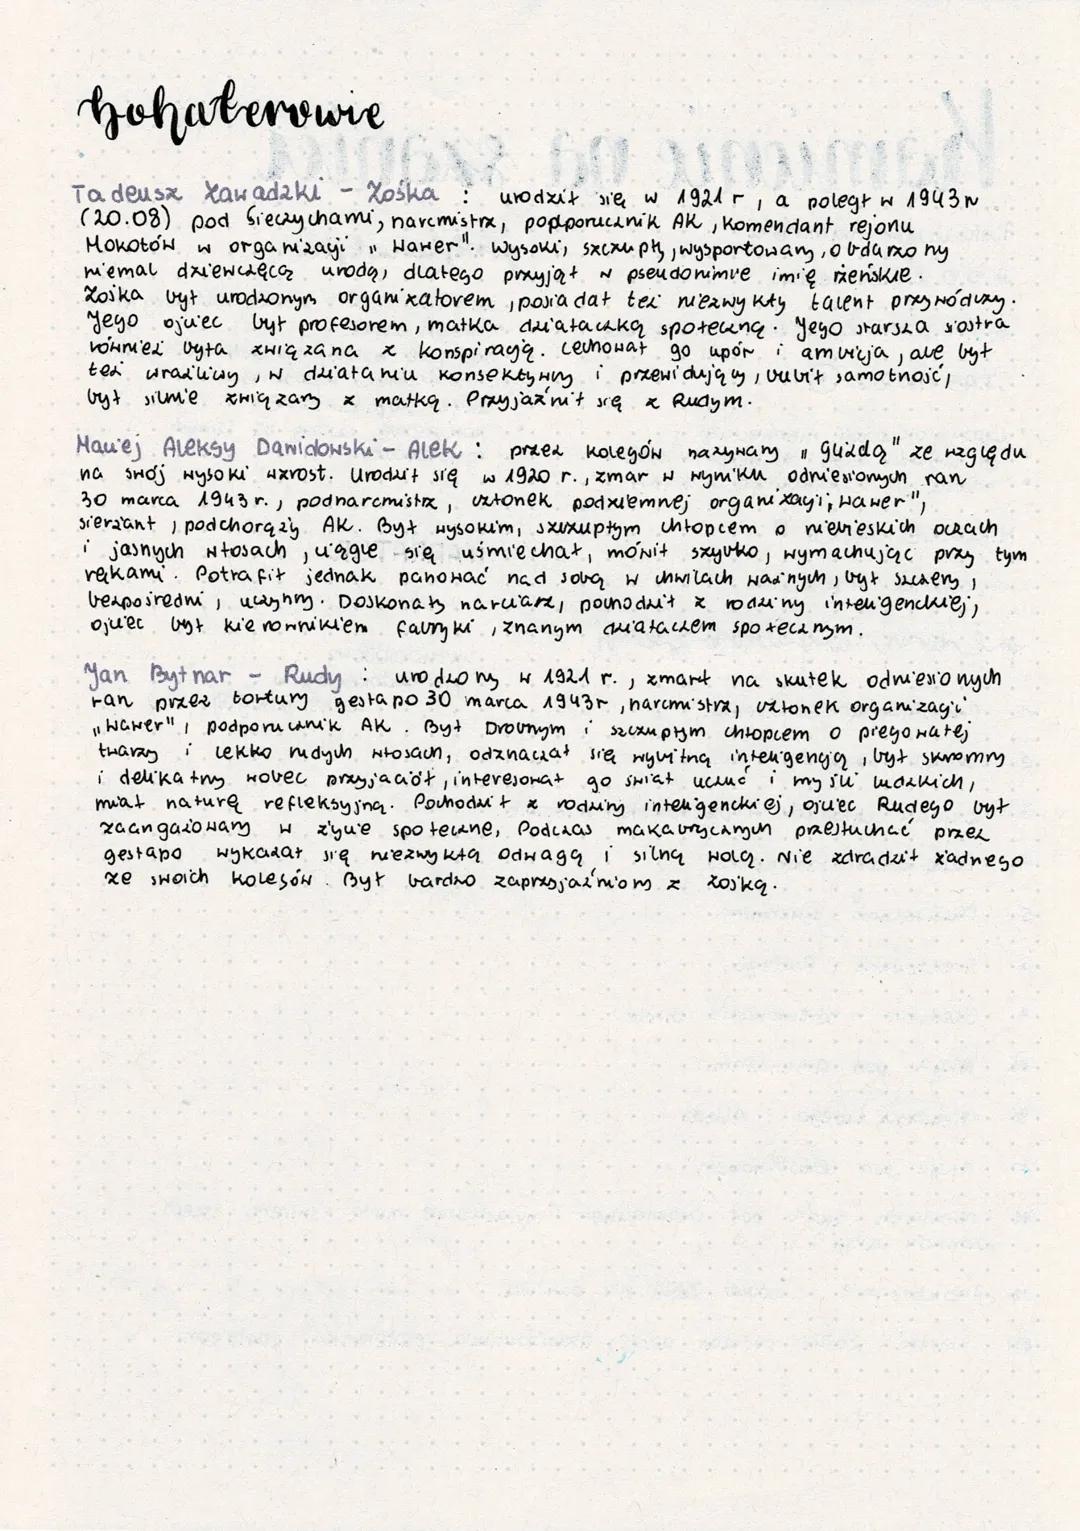 bohaterowie
Tadeusz Zawadzki - Zośka : urodził się w 1921 r, a poległ w 1943r
(20.08) pod Sieczychami, harcmistrz, podporucznik AK, Komendant rejonu
Mokotów w organizacji „Wawer". Wysoki, szczupły, wysportowany, obdarzony
niemal dziewczęcą urodą, dlatego przyjął w pseudonimie imię żeńskie.
Zośka był urodzonym organizatorem, posiadał też niezwykły talent przywódczy.
Jego ojciec był profesorem, matka działaczką społeczną. Jego starsza siostra
również była związana z konspiracją. Cechował go upór i ambicja, ale był
też wrażliwy, w działaniu konsektywny i przewidujący, lubił samotność,
był silnie związany z matką. Przyjaźnił się z Rudym.
Maciej Aleksy Dawidowski - Alek : przez kolegów nazywany „Glizdą" ze względu
na swój wysoki wzrost. Urodził się w 1920 r., zmarł w wyniku odniesionych ran
30 marca 1943 r., podharcmistrz, członek podziemnej organizacji „Wawer",
sierżant, podchorąży AK. Był wysokim, szczupłym chłopcem o niebieskich oczach
i jasnych włosach, ciągle się uśmiechał, mówił szybko, wymachując przy tym
rękami. Potrafił jednak panować nad sobą w chwilach ważnych, był szczery,
bezpośredni, uczynny. Doskonały narciarz, pochodził z rodziny inteligenckiej,
ojciec był kierownikiem fabryki, znanym działaczem społecznym.
Jan Bytnar - Rudy : urodzony w 1921 r., zmarł na skutek odniesionych
ran przez tortury gestapo 30 marca 1943r, harcmistrz, członek organizacji
„Wawer", podporucznik AK. Był Drobnym i szczupłym chłopcem o piegowatej
twarzy i lekko rudych włosach, odznaczał się wybitną inteligencją, był skromny
i delikatny wobec przyjaciół, interesował go świat uczuć i myśli ludzkich,
miał naturę refleksyjną. Pochodził z rodziny inteligenckiej, ojciec Rudego był
zaangażowany w życie społeczne, Podczas makabrycznych przesłuchać przez
gestapo wykazał się niezwykłą odwagą i silną wolą. Nie zdradził żadnego
ze swoich kolegów. Był bardzo zaprzyjaźniony z Zośką.